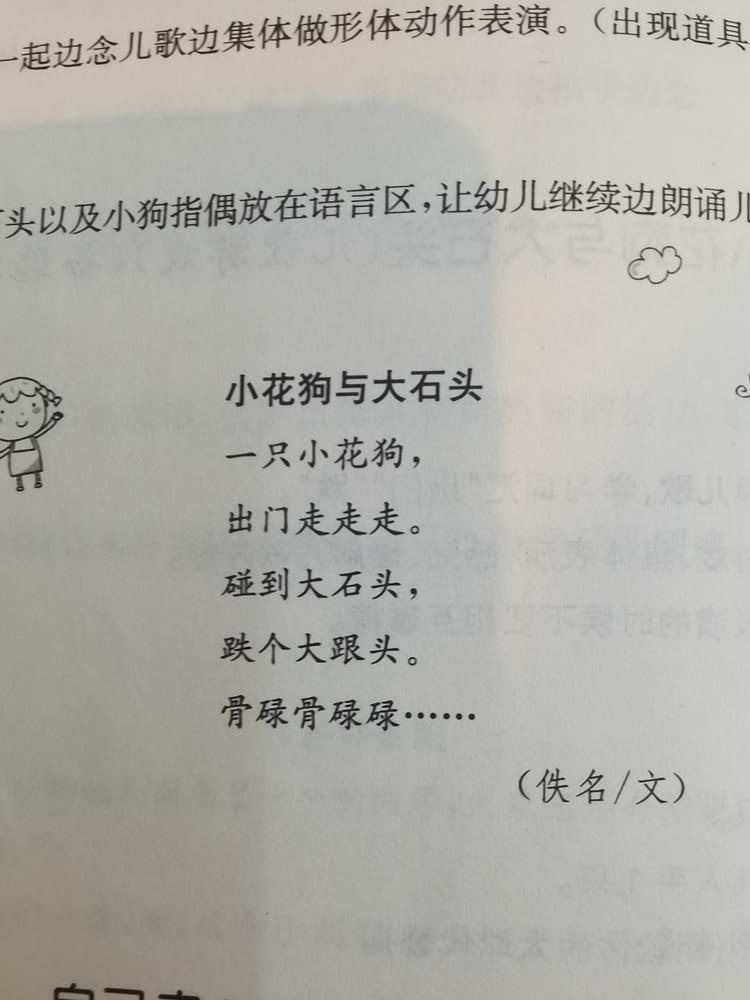 一起边念儿歌边集体做形体动作表演。（出现道具
头以及小狗指偶放在语言区，让幼儿继续边朗诵儿
小花狗与大石头
一只小花狗，
出门走走走。
碰到大石头，
跌个大跟头。
骨碌骨碌碌……
（佚名/文）